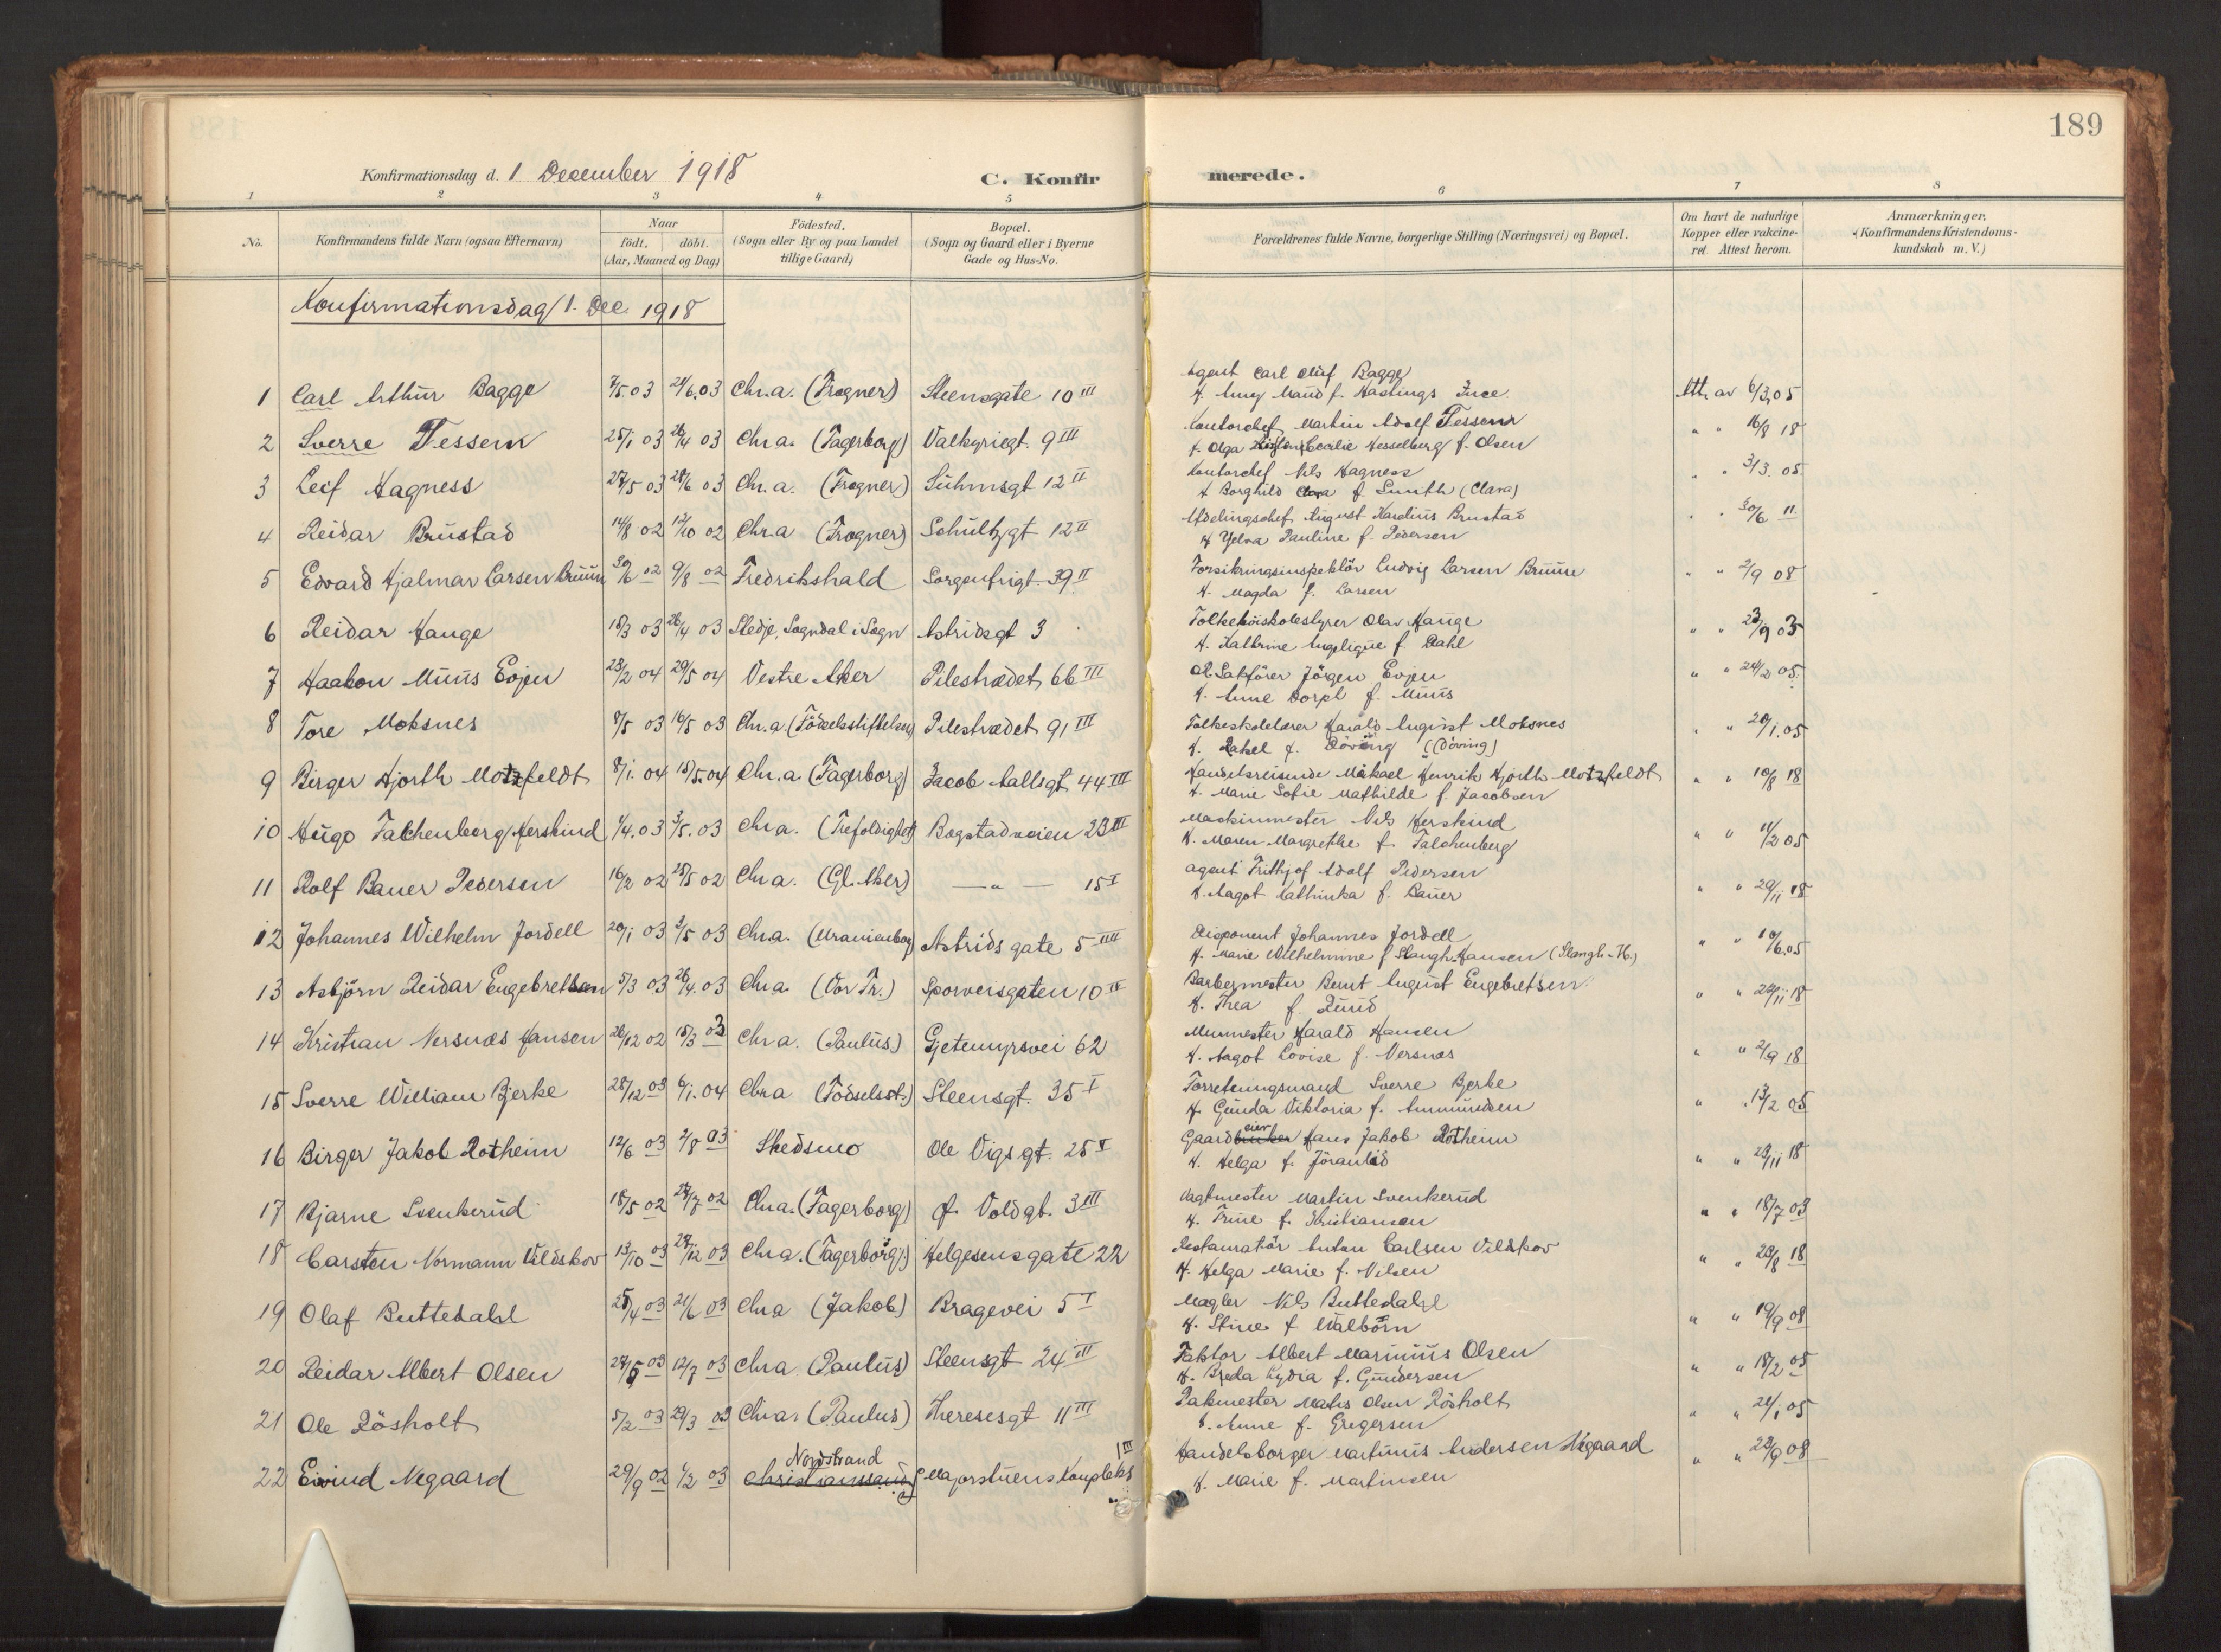 189
Konfirmationsdag d. 1 December 1918
C. Konfir merede.
1 2 3 4 5 6 7 8
No.
Konfirmandens fulde Navn (ogsaa Efternavn)
Naar
født. døbt.
(Aar, Maaned og Dag)
Födested.
(Sogn eller By og paa Landet
tillige Gaard)
Bopæl.
(Sogn og Gaard eller i Byerne
Gade og Hus-No.
Forældrenes fulde Navne, borgerlige Stilling (Næringsvei) og Bopæl.
Om havt de naturlige
Kopper eller vakcine-
ret. Attest herom.
Anmærkninger.
(Konfirmandens Kristendoms-
kundskab m. V.)
Konfirmationsdag 1. Dec. 1918
1 Carl Arthur Bagge 7/5.03 21/6.03 Chr.a. (Fragner) Steensgate 10 III Agent Carl Oluf Bagge Att. av 6/3.05
H. Amy Maud f. Hastings Ince
2 Sverre Tessem 25/1 03 26/4 03 Chr.a. (Fagerborg) Valkyriegt. 9 III Kontorchef Martin Adolf Tessem " " 16/8 18
H. Olga Cecilie Hesselberg f. Olsen
3 Leif Hagness 27/5 03 28/6 03 Chr.a. (Fragner) Suhmsgt 12 II Kontorchef Nils Hagness " " 3/3. 05
H Borghild Clara f. Smith (Clara)
4 Reidar Brustad 14/8 02 12/10 02 Chr.a (Frogner) Schultzgt 12 II Afdelingschef August Karelius Brustad " " 30/6 11
H Yelva Pauline f. Pedersen
5 Edvard Hjalmar Larsen Bruun 30/6 02 9/8 02 Fredrikshald Sorgenfrigt. 39 II Forsikringsinspektör Ludvig Larsen Bruun " " 2/9 08
H. Magda f. Larsen
6 Reidar Hauge 18/3 03 26/4 03 Stedje, Sogndal i Sogn Astridsgt 3 Folkehöiskolestyrer Olav Hauge " " 23/9 03
H. Kathrine Angelique f. Dahl
7 Haakon Muus Evjen 28/2 04 29/5 04 Vestre Aker Pilestrædet 66 III O.R. Sakförer Jörgen Evjen " " 24/2 05.
H. Anne Dorph f. Muus
8 Tore Moksnes 8/5 03 16/5 03 Chr.a. (Födselsstiftelsen) Pilestrædet 91 III Folkeskolelærer Harald August Moksnes " " 20/1.05
H. Rakel f. Döving (Döving)
9 Birger Hjorth Motzfeldt 8/1. 04 15/5.04 Chr.a. (Fagerborg) Jacob Aallsgt 44 III Handelsreisende Mikael Henrik Hjorth Motzfeldt " " 10/8 18
H. Marie Sofie Mathilde f. Jacobsen
10 Hugo Falchenberg Herskind 1/4.03 3/5.03 Chr.a. (Trefoldighet) Bogstadveien 23 III Maskinmester Nils Herskind " " 11/2 05
H. Maren Margrethe f. Falchenberg
11 Rolf Bauer Pedersen 16/2 02 25/5 02 Chr a. (Gl. Aker) — " — 15 I Agent Frithjof Adolf Pedersen " " 29/11 18
H. Aagot Cathinka f. Bauer
12 Johannes Wilhelm Jordell 20/1 03 3/5 03 Chr.a. (Uranienborg) Astrids gate 5 IIII Disponent Johannes Jordell " " 10/6.05
H. Marie Wilhelmine f Stangh. Hansen (Stangh.-H.)
13 Asbjörn Reidar Engebretsen 5/3 03 26/4.03 Chr.a. (Vor Fr.) Sporveisgaten 10 III Barbermester Bernt August Engebretsen " " 22/11 18
H. Thea f. Ruud
14 Kristian Nersnæs Hansen 26/12 02 15/3 03 Chr a. (Paulus) Gjetemyrsvei 62 Murmester Harald Hansen " " 2/9 18
H. Aagot Lovise f. Nersnæs
15 Sverre William Bjerke 28/12 03 6/1.04 Chr.a (Födselsst.) Steensgt. 35 I Forretningsmand Sverre Bjerke " " 13/2 05
H. Gunda Viktoria f. Ammundsen
16 Birger Jakob Rotheim 12/6 03 2/8 03 Skedsmo Ole Vigs gt. 25 I Gaardeier Hans Jakob Rotheim " " 23/11 18
H. Helga f. Jöranlid
17 Bjarne Svenkerud 18/5 02 27/7 02 Chr.a. (Fagerborg) J. Voldgt. 3 III Vagtmester Martin Svenkerud " " 18/7 03
H. Trine f. Kristiansen
18 Carsten Normann Vildskov 13/10 03 27/12 03 Chr.a. (Fagerborg) Helgesensgate 22 Restauratör Anton Carlsen Vildskov " " 28/8 18
H. Helga Marie f. Nilsen
19 Olaf Buttedahl 25/4 03 21/6 03 Chr.a (Jakob) Bragevei 5 I Mægler Nils Buttedahl " " 19/9 08
H. Stine f. Walbörn
20 Reidar Albert Olsen 27/5 03 12/7 03 Chr.a (Paulus) Steensgt 24 III Faktor Albert Marinius Olsen " " 18/2 05
H. Breda Lydia f. Gundersen
21 Ole Rösholt 5/2 03 29/3 03 Chr.a. (Paulus) Theresesgt 11 III Pakmester Mathis Olsen Rösholt " " 21/1 05
H. Anne f. Gregersen
22 Eivind Negaard 29/9 02 1/2 03 Nordstrand Christianssand Majorstuens Kompleks 1 III Handelsborger Martinius Andersen Negaard " " 28/9 08
H. Marie f. Martinsen